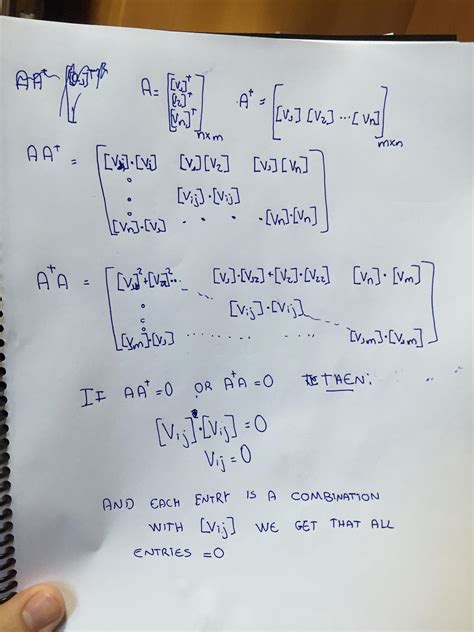 A = [[V₁]ᵀ [V₂]ᵀ [Vₙ]ᵀ] n×m   Aᵀ = [[V₁] [V₂] ··· [Vₙ]] m×n
AAᵀ = [V₁]·[V₁]   [V₁][V₂]   [V₁][Vₙ]
[Vij]·[Vij]
[Vₙ]·[V₁] · · · · [Vₙ]·[Vₙ]
AᵀA = [V₁₁]²+[V₂₁]²··   [V₁]·[V₁₂]+[V₂]·[V₂₂]   [Vₙ]·[Vₘ]
[Vij]·[Vij]
·[V₁] ······· [Vₘ]
IF AAᵀ=0 OR AᵀA=0 THEN:
[Vij]·[Vij]=0
Vij=0
AND EACH ENTRY IS A COMBINATION
WITH [Vij] WE GET THAT ALL
ENTRIES =0